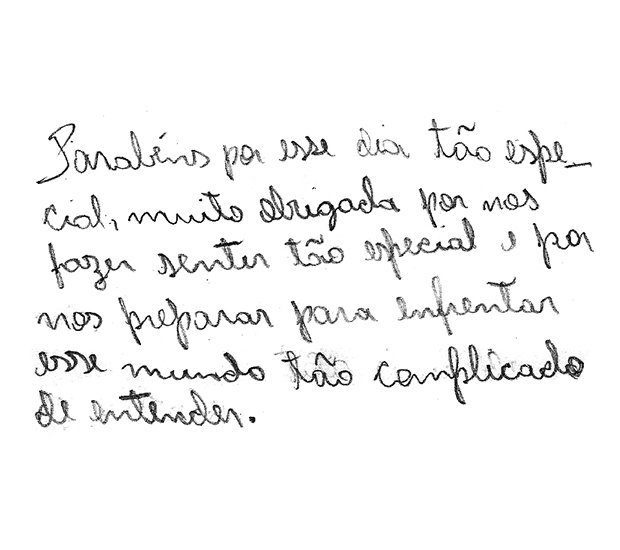 Parabéns por esse dia tão espe-
cial, muito obrigada por nos
fazer sentir tão especial e por
nos preparar para enfrentar
esse mundo tão complicado
de entender.